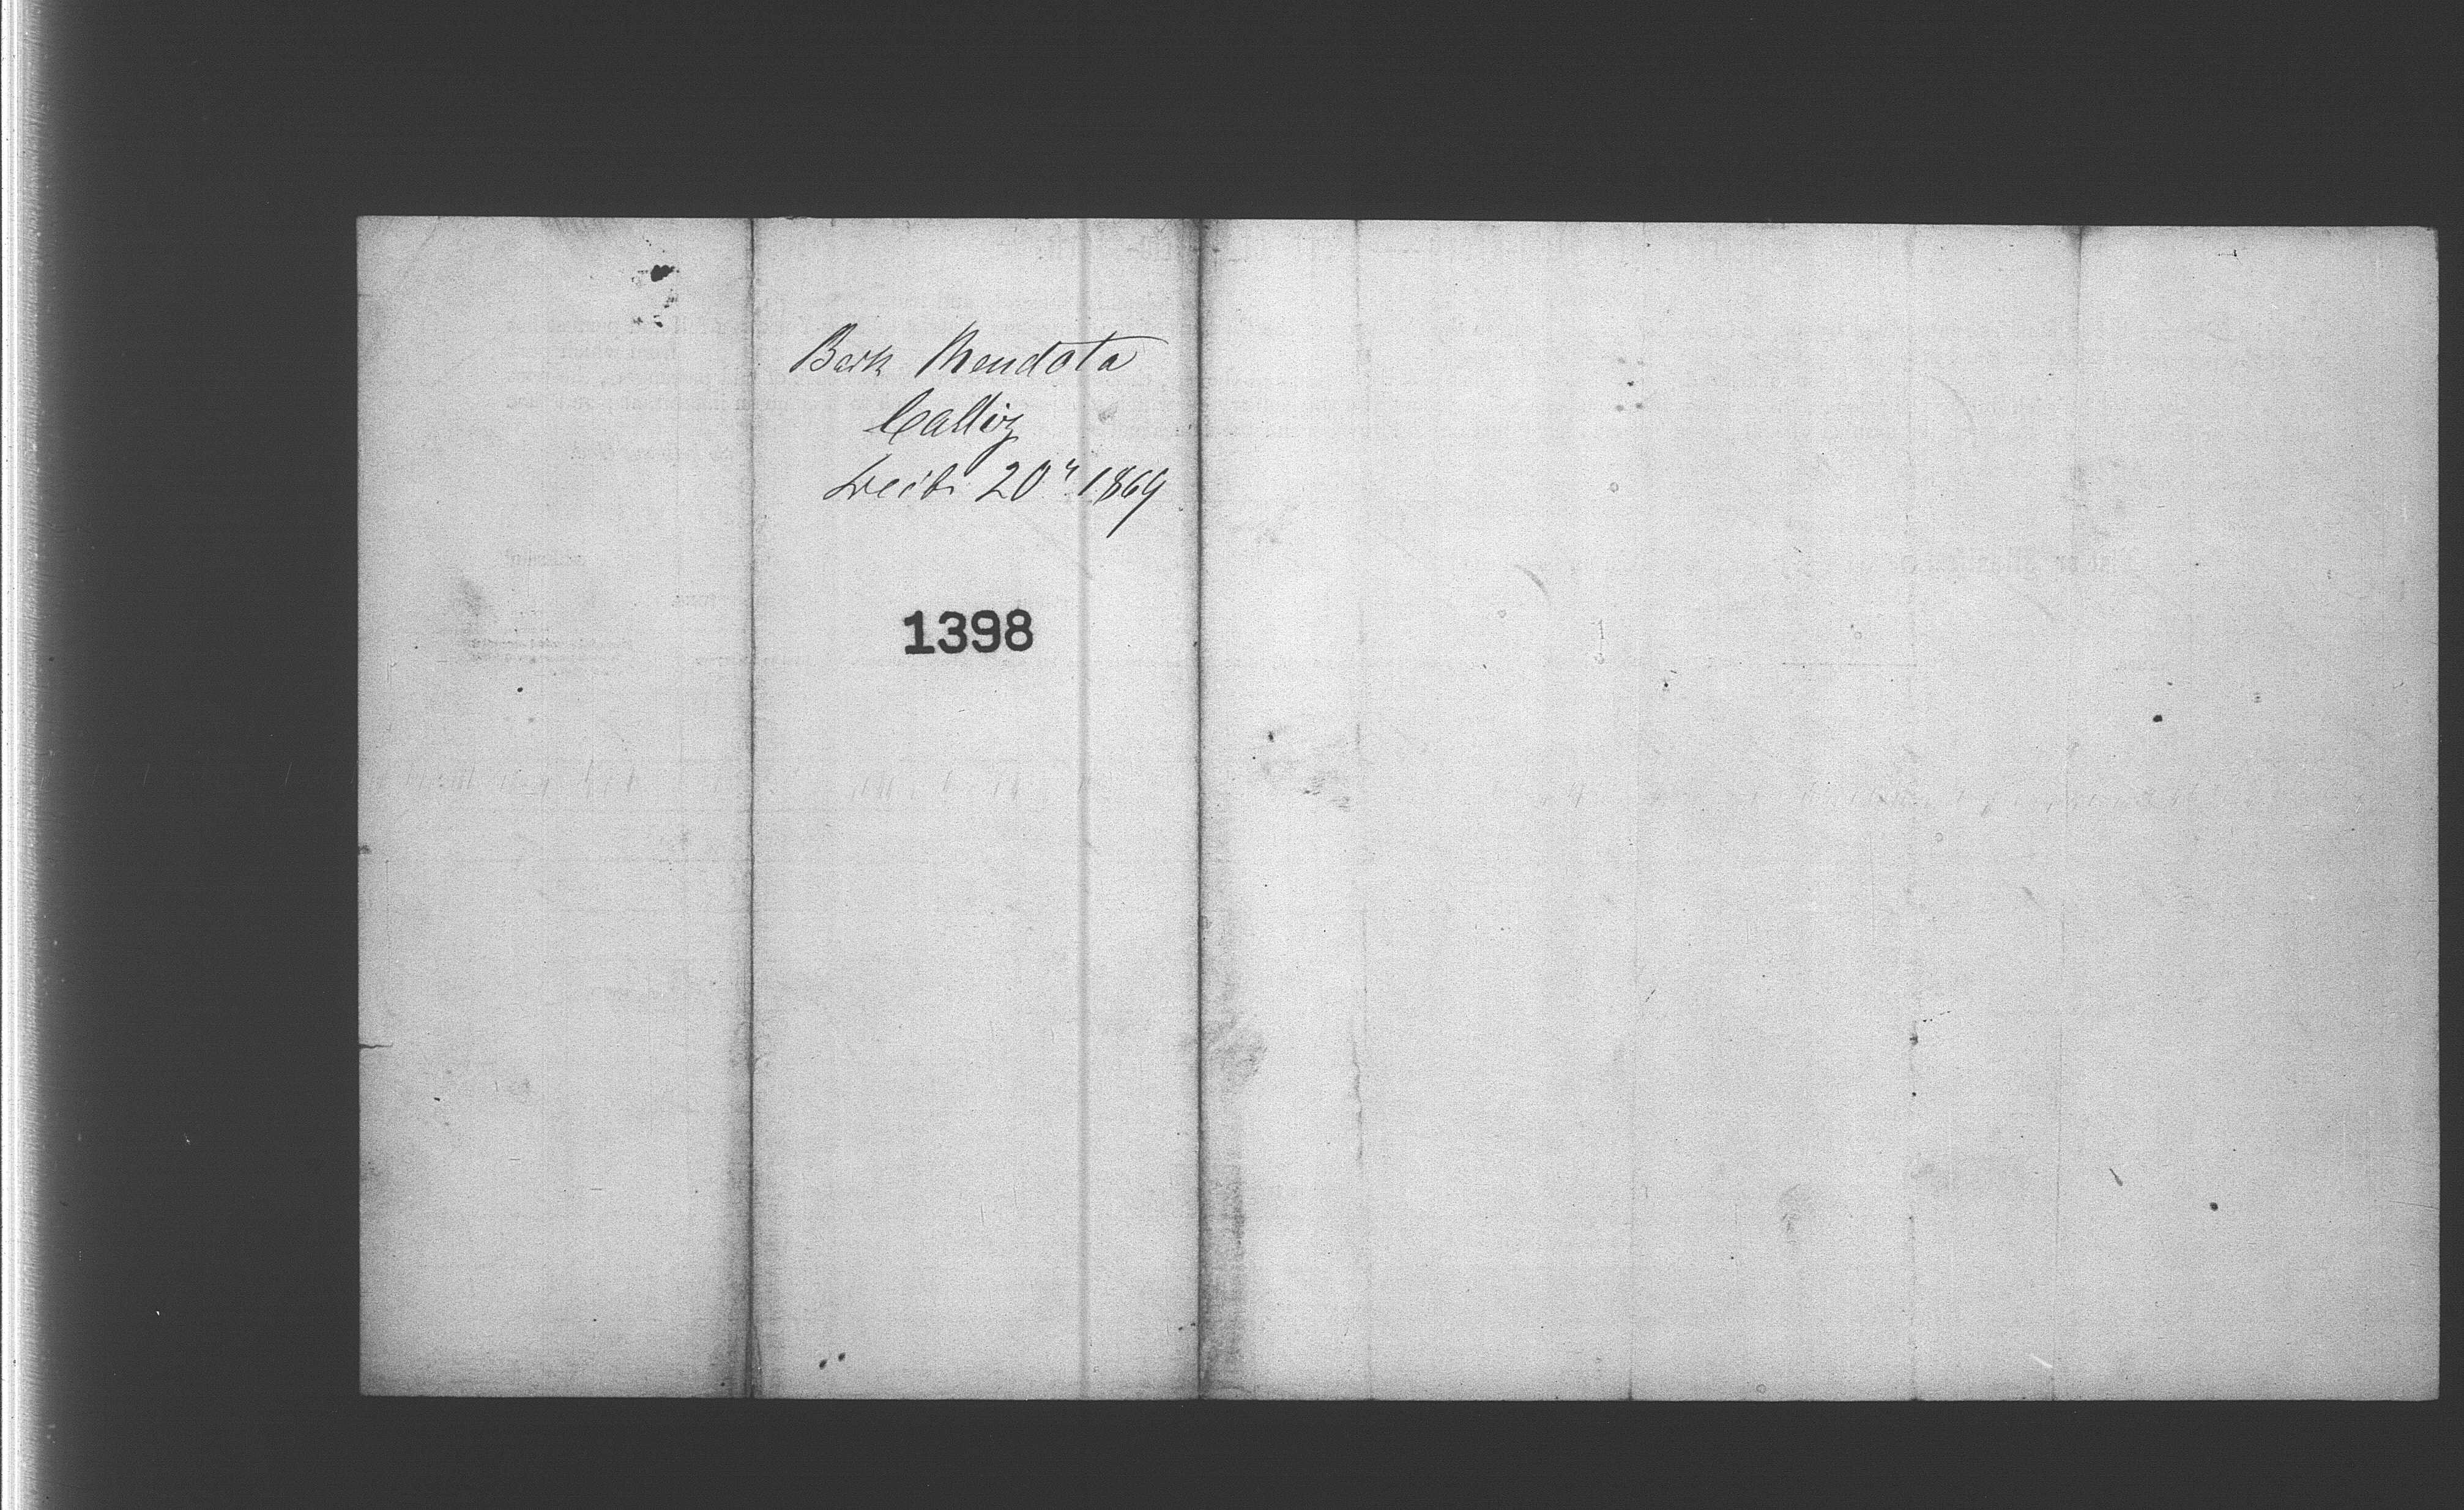 Bark Mendota
Cadiz
Decbr 20" 1869
1398